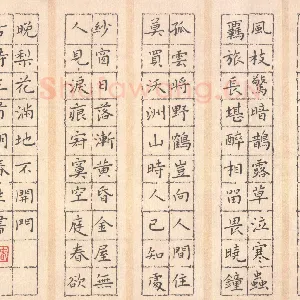 風枝驚暗鵲露草泣寒蟲
羈旅長堪醉相留畏曉鐘
孤雲將野鶴豈向人間住
莫買沃洲山時人已知處
紗窗日落漸黃昏金屋無
人見淚痕寂寞空庭春欲
晚梨花滿地不開門